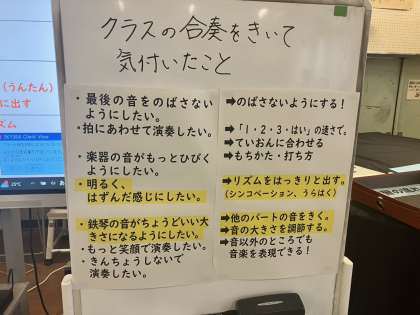 クラスの合奏をきいて
気付いたこと
・最後の音をのばさない
ようにしたい。
・拍にあわせて演奏したい。
・楽器の音がもっとひびく
ようにしたい。
・明るく、
はずんだ感じにしたい。
・鉄琴の音がちょうどいい大
きさになるようにしたい。
・もっと笑顔で演奏したい。
・きんちょうしないで
演奏したい。
➡のばさないようにする！
➡「1・2・3・はい」の速さで。
➡ていおんに合わせる
➡もちかた・打ち方
➡リズムをはっきりと出す。
（シンコペーション、うらはく）
➡他のパートの音をきく。
➡音の大きさを調節する。
➡音以外のところでも
音楽を表現できる！
（うんたん）
に出す
ズム
25°C